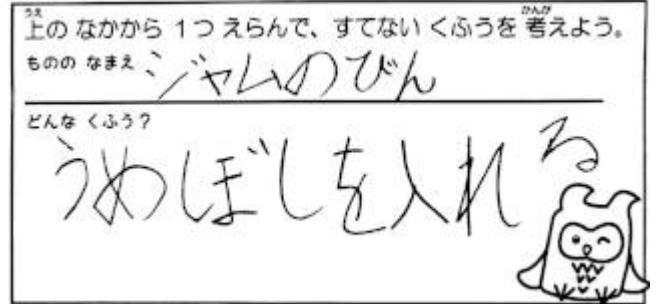 上の なかから 1つ えらんで、すてない くふうを 考えよう。
ものの なまえ
ジャムのびん
どんな くふう?
うめぼしを入れる